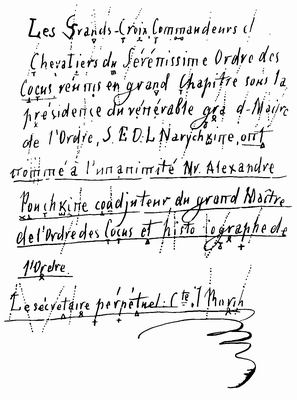 Les Grands-Croix Commandeurs et
Chevaliers du Sérénissime Ordre des
Cocus reunis en grand Chapitre sous la
présidence du vénérable grand-Maître
de l'Ordre, S.E.D.L Narychkine, ont
nommé a l'unanimité Mr. Alexandre
Pouchkine coadjuteur du grand Maître
de l'Ordre des Cocus et historiographe de
l'Ordre.
Le sécrétaire perpétuel: Cte. J Borch